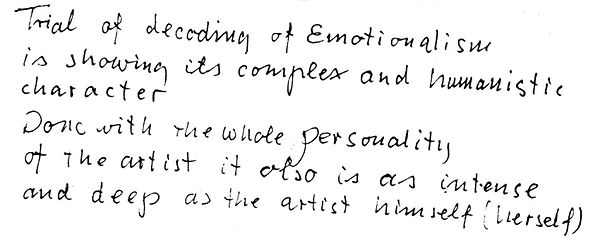 Trial of decoding of Emotionalism
is showing its complex and humanistic
character
Done with the whole personality
of the artist it also is as intense
and deep as the artist himself (herself)